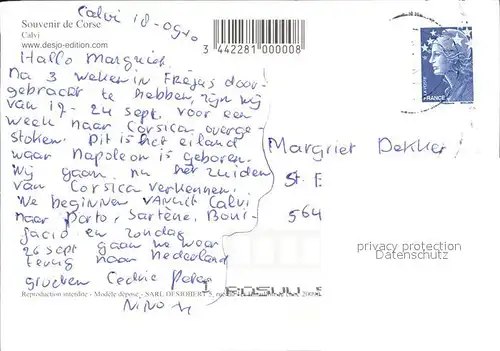 Calvi 18-09-10
Souvenir de Corse
Calvi
www.desjo-edition.com
3 442281 000008
Hallo Margriet.
Na 3 weken in Fréjus door-
gebracht te hebben, zijn wij
van 17 - 24 sept. voor een
week naar Corsica overge-
stoken. Dit is het eiland
waar Napoleon is geboren.
Wij gaan nu het zuiden
van Corsica verkennen.
We beginnen vanuit Calvi
naar Porto, Sartène, Boni-
facio en zondag
26 sept gaan we weer
terug naar Nederland
groeten Cedric Peter
Nino
FRANCE
Margriet Dekker
St.
564
privacy protection
Datenschutz
Reproduction interdite - Modèle déposé - SARL DESJOBERT S,